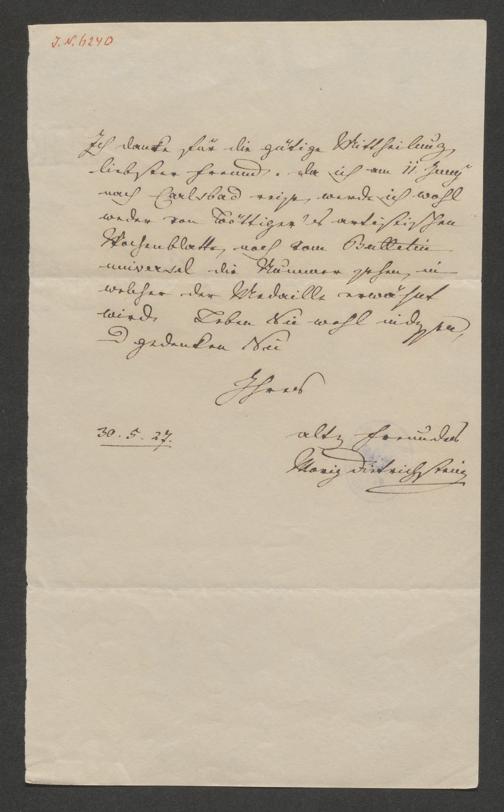 J. N. 6240
Ich danke für die gütige Mittheilung,
liebster Freund. Da ich am 11 Juny
nach Carlsbad reise, werde ich wohl
weder von Böttiger's artistischen
Wochenblatte, noch vom Bulletin
universel die Nummer sehen, in
welcher der Medaille erwähnt
wird. Leben Sie wohl indessen,
gedenken Sie
Ihres
30. 5. 27.
alten Freundes
Moriz Dietrichstein